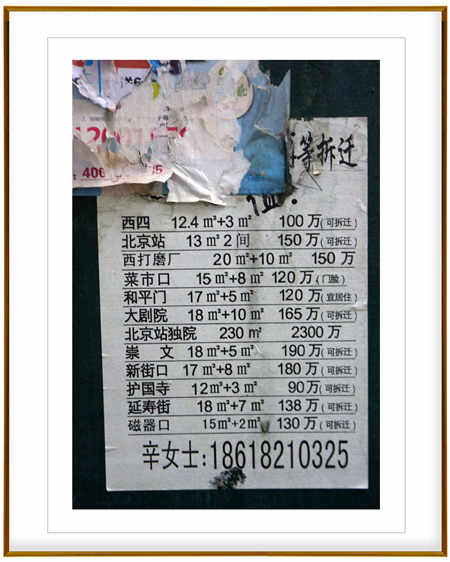 等拆迁
西四 12.4㎡+3㎡ 100万(可拆迁)
北京站 13㎡2间 150万(可拆迁)
西打磨厂 20㎡+10㎡ 150万
菜市口 15㎡+8㎡ 120万(门脸)
和平门 17㎡+5㎡ 120万(宜居住)
大剧院 18㎡+10㎡ 165万(可拆迁)
北京站独院 230㎡ 2300万
崇文 18㎡+5㎡ 190万(可拆迁)
新街口 17㎡+8㎡ 180万(可拆迁)
护国寺 12㎡+3㎡ 90万(可拆迁)
延寿街 18㎡+7㎡ 138万(可拆迁)
磁器口 15㎡+2㎡ 130万(可拆迁)
辛女士:18618210325